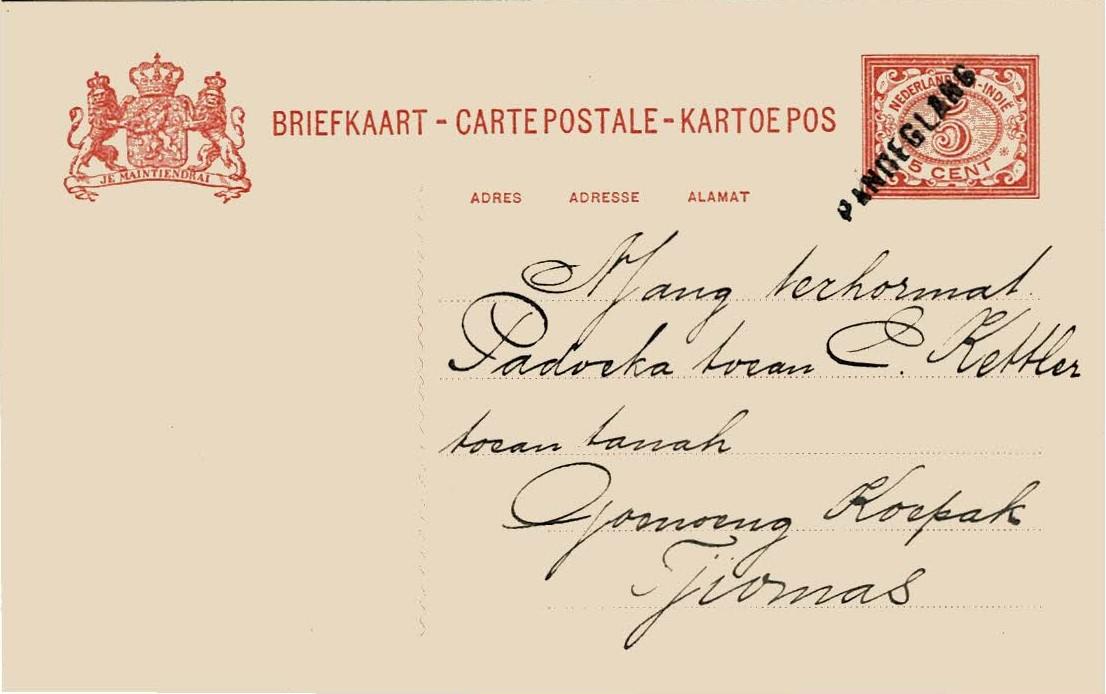 JE MAINTIENDRAI
BRIEFKAART - CARTE POSTALE - KARTOE POS
NEDERLANDSCH-INDIË
5
5 CENT
PANDEGLANG
ADRES ADRESSE ALAMAT
Njang terhormat
Padoeka toean C. Kettler
toean tanah
Goenoeng Koepak
Tjiomas